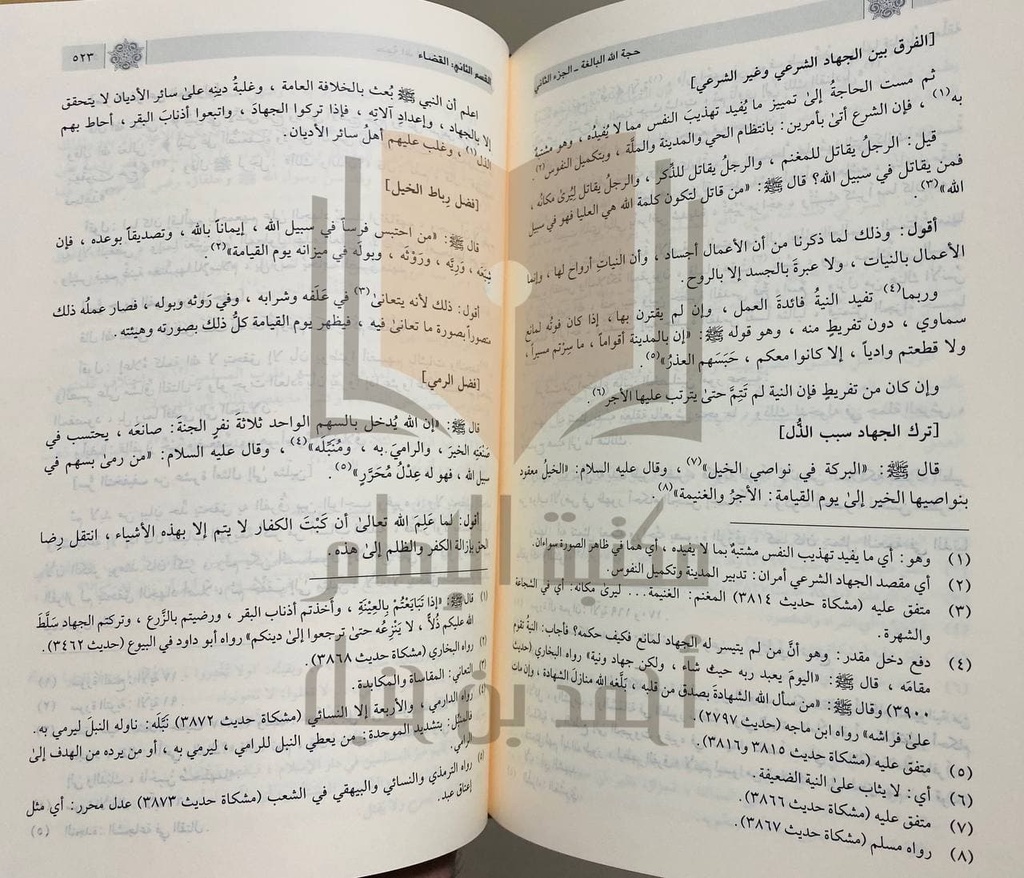 حجة الله البالغة - الجزء الثاني
[الفرق بين الجهاد الشرعي وغير الشرعي]
ثم مست الحاجةُ إلىٰ تمييز ما يُفيد تهذيبَ النفس مما لا يُفيدُه ، وهو مشتبهٌ
به(١) ، فإن الشرع أتىٰ بأمرين: بانتظام الحي والمدينة والملَّة ، وبتكميل النفوس(٢).
قيل: الرجلُ يقاتل للمغنم ، والرجلُ يقاتل للذِّكر ، والرجلُ يقاتل لِيُرىٰ مكانُه ،
فمن يقاتل في سبيل الله؟ قال ﷺ: «من قاتل لتكون كلمة الله هي العليا فهو في سبيل
الله»(٣).
أقول: وذلك لما ذكرنا من أن الأعمال أجساد ، وأن النياتِ أرواحٌ لها ، وإنما
الأعمال بالنيات ، ولا عبرةَ بالجسد إلا بالروح.
وربما(٤) تفيد النيةُ فائدةَ العمل ، وإن لم يقترن بها ، إذا كان فوتُه لمانع
سماوي ، دون تفريطٍ منه ، وهو قوله ﷺ: «إن بالمدينة أقواماً ، ما سِرْتم مسيراً ،
ولا قطعتم وادياً ، إلا كانوا معكم ، حَبَسَهم العذرُ»(٥).
وإن كان من تفريطٍ فإن النية لم تَتِمَّ حتىٰ يترتب عليها الأجر(٦).
[ترك الجهاد سبب الذُّل]
قال ﷺ: «البركة في نواصي الخيل»(٧) ، وقال عليه السلام: «الخيلُ معقود
بنواصيها الخير إلىٰ يوم القيامة: الأجرُ والغنيمة»(٨).
(١) وهو: أي ما يفيد تهذيب النفس مشتبهٌ بما لا يفيده ، أي هما في ظاهر الصورة سواءان.
(٢) أي مقصد الجهاد الشرعي أمران: تدبير المدينة وتكميل النفوس.
(٣) متفق عليه (مشكاة حديث ٣٨١٤) المغنم: الغنيمة... ليرىٰ مكانه: أي في الشجاعة
والشهرة.
(٤) دفع دخل مقدر: وهو أنَّ من لم يتيسر له الجهاد لمانع فكيف حكمه؟ فأجاب: النيةُ تقوم
مقامَه ، قال ﷺ: «اليومَ يعبد ربه حيث شاء ، ولكن جهاد ونية» رواه البخاري (حديث
٣٩٠٠) وقال ﷺ: «من سأل الله الشهادةَ بصدق من قلبه ، بَلَّغه الله منازلَ الشهادة ، وإن مات
علىٰ فراشه» رواه ابن ماجه (حديث ٢٧٩٧).
(٥) متفق عليه (مشكاة حديث ٣٨١٥ و٣٨١٦).
(٦) أي: لا يثاب علىٰ النية الضعيفة.
(٧) متفق عليه (مشكاة حديث ٣٨٦٦).
(٨) رواه مسلم (مشكاة حديث ٣٨٦٧).
القسم الثاني: القضاء
٥٢٣
اعلم أن النبي ﷺ بُعث بالخلافة العامة ، وغلبةُ دينِه علىٰ سائر الأديان لا يتحقق
إلا بالجهاد ، وإعدادِ آلاتِه ، فإذا تركوا الجهادَ ، واتبعوا أذنابَ البقر ، أحاط بهم
الذل(١) ، وغلب عليهم أهلُ سائر الأديان.
[فضل رِباط الخيل]
قال ﷺ: «من احتبس فرساً في سبيل الله ، إيماناً بالله ، وتصديقاً بوعده ، فإن
شِبَعَه ، ورَيَّه ، ورَوْثَه ، وبولَه في ميزانه يوم القيامة»(٢).
أقول: ذلك لأنه يتعانىٰ(٣) في عَلَفه وشرابه ، وفي رَوْثه وبوله ، فصار عملُه ذلك
متصوراً بصورة ما تعانىٰ فيه ، فيظهر يوم القيامة كلُّ ذلك بصورته وهيئته.
[فضل الرمي]
قال ﷺ: «إن الله يُدخل بالسهم الواحد ثلاثةَ نفرٍ الجنةَ: صانعَه ، يحتسب في
صَنْعَتِه الخيرَ ، والراميَ به ، ومُنَبِّله»(٤) ، وقال عليه السلام: «من رمىٰ بسهم في
سبيل الله ، فهو له عِدْلُ مُحَرَّرٍ»(٥).
أقول: لما عَلِمَ الله تعالىٰ أن كَبْتَ الكفار لا يتم إلا بهذه الأشياء ، انتقل رِضا
الحق بإزالة الكفر والظلم إلىٰ هذه.
(١) قال ﷺ: «إذا تَبَايَعْتُمْ بِالعِينَةِ ، وأخذتم أذنابَ البقر ، ورضيتم بالزَّرع ، وتركتم الجهاد سَلَّطَ
الله عليكم ذُلاًّ ، لا يَنْزِعُه حتىٰ ترجعوا إلىٰ دينكم» رواه أبو داود في البيوع (حديث ٣٤٦٢).
(٢) رواه البخاري (مشكاة حديث ٣٨٦٨).
(٣) التعاني: المقاساة والمكابدة.
(٤) رواه الدارمي ، والأربعة إلا النسائي (مشكاة حديث ٣٨٧٢) نَبَّلَه: ناوله النبلَ ليرمي به.
فالمنبِّل: بتشديد الموحدة: من يعطي النبل للرامي ، ليرمي به ، أو من يرده من الهدف إلىٰ
الرامي.
(٥) رواه الترمذي والنسائي والبيهقي في الشعب (مشكاة حديث ٣٨٧٣) عدل محرر: أي مثل
إعتاق عبد.
مكتبة الإمام
أحمد بن حنبل